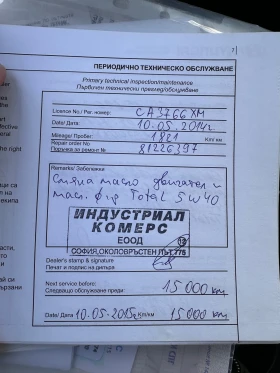 7
ПЕРИОДИЧНО ТЕХНИЧЕСКО ОБСЛУЖВАНЕ
Primary technical inspection/maintenance
Първичен технически преглед/обслужване
Licence No./ Рег. номер: CA3766XM
Date/ Дата: 10.05.2014г.
Mileage/ Пробег: 1821 Km/ км.
Repair order No
Поръчка за ремонт № 81226397
Remarks/ Забележки:
Смяна масло двигател и
мас. ф-р Total 5w40
ИНДУСТРИАЛ
КОМЕРС
ЕООД
СОФИЯ, ОКОЛОВРЪСТЕН ПЪТ 775
Dealer's stamp & signature
Печат и подпис на дилъра
Next service before:
Следващо обслужване преди: 15 000 km
Date/ Дата: 10.05.2015г. Km/км 15 000 km